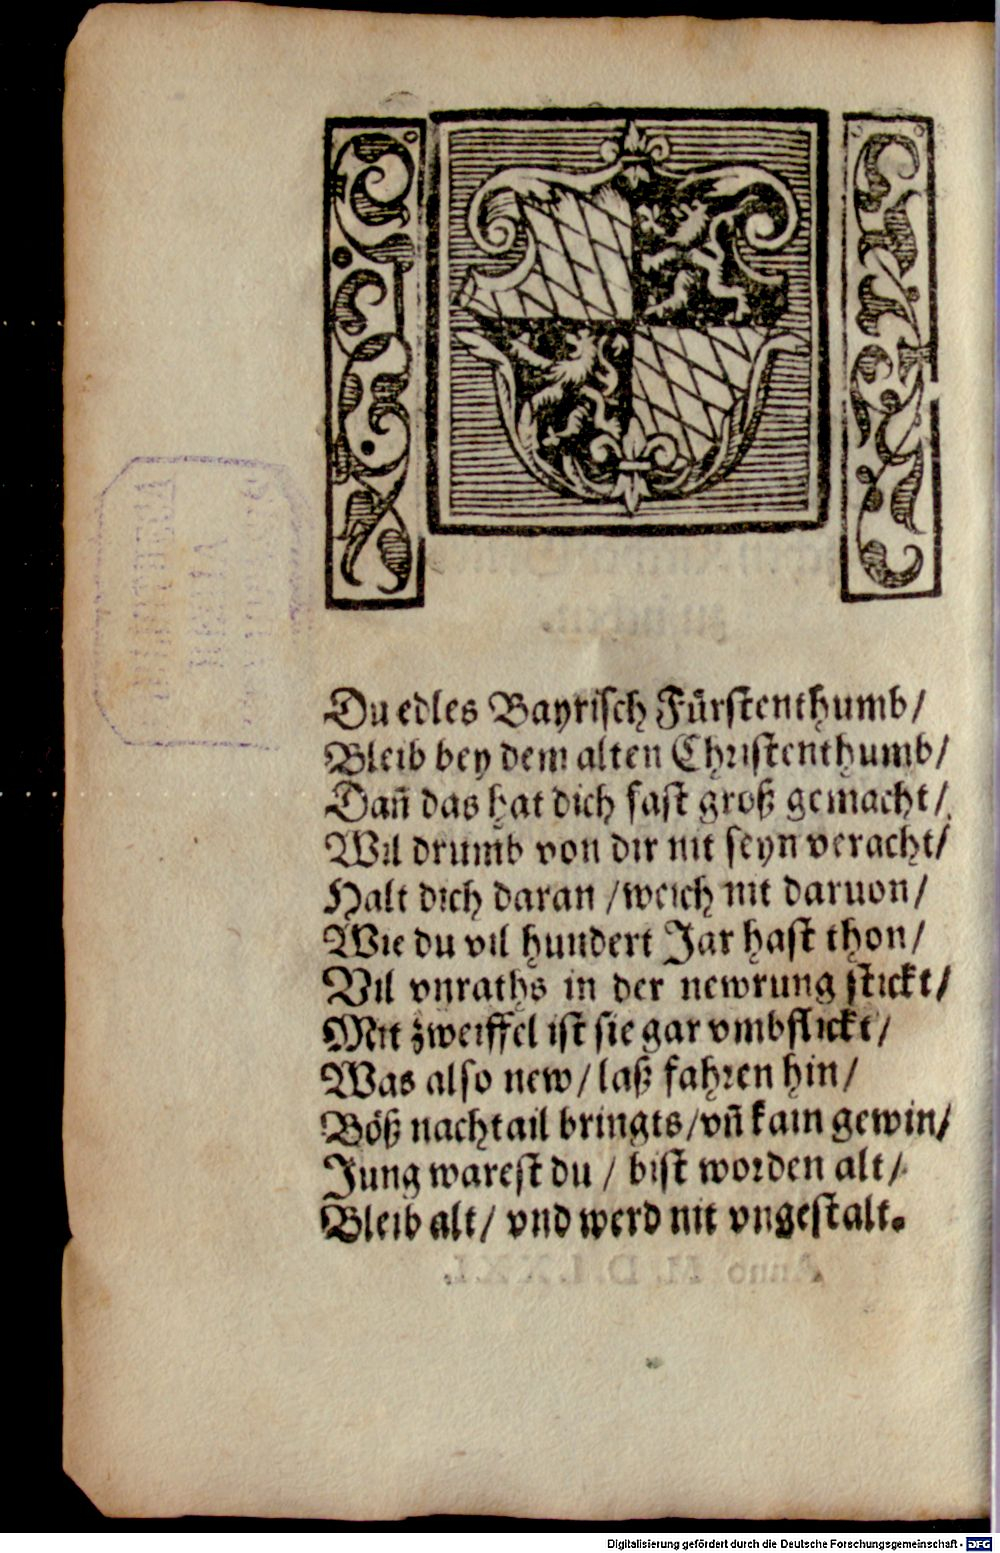 Du edles Bayrisch Fürstenthumb/
Bleib bey dem alten Christenthumb/
Dañ das hat dich fast groß gemacht/
Wil drumb von dir nit seyn veracht/
Halt dich daran /weich nit daruon/
Wie du vil hundert Jar hast thon/
Vil vnraths in der newrung stickt/
Mit zweiffel ist sie gar vmbflickt/
Was also new/ laß fahren hin/
Böß nachtail bringts/vñ kain gewin/
Jung warest du / bist worden alt/
Bleib alt/ vnd werd nit vngestalt.
Anno M. D. LXXI.
Digitalisierung gefördert durch die Deutsche Forschungsgemeinschaft - DFG